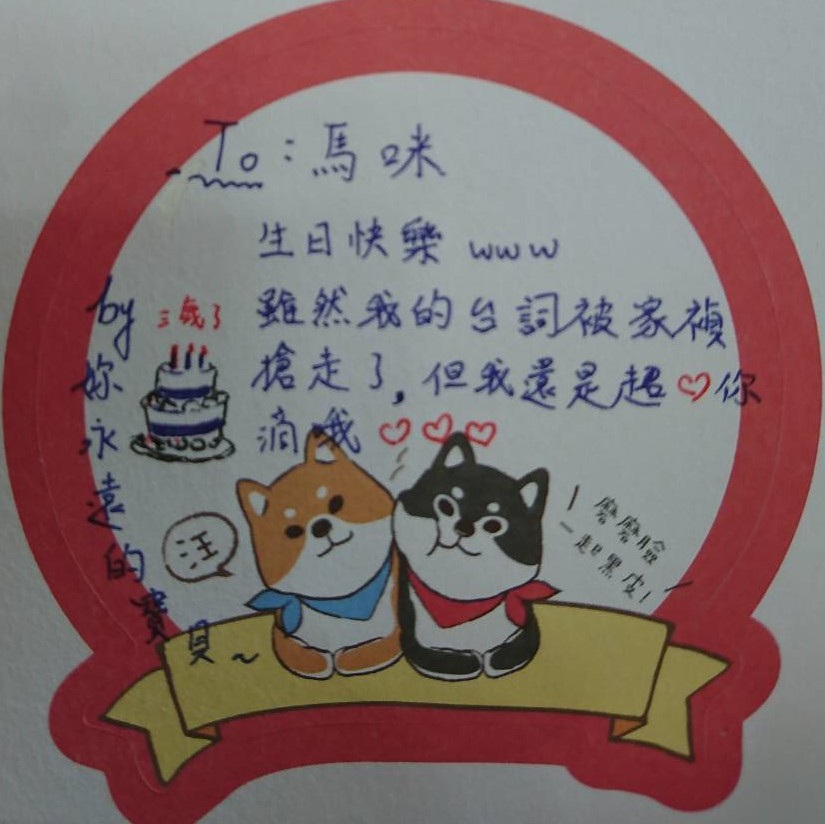 To：馬咪
生日快樂 www
雖然我的台詞被家禎
搶走了,但我還是超♡你
滴哦♡♡♡
三歲了
by
妳
永
遠
的
寶
貝~
汪
磨磨臉
一起黑皮!